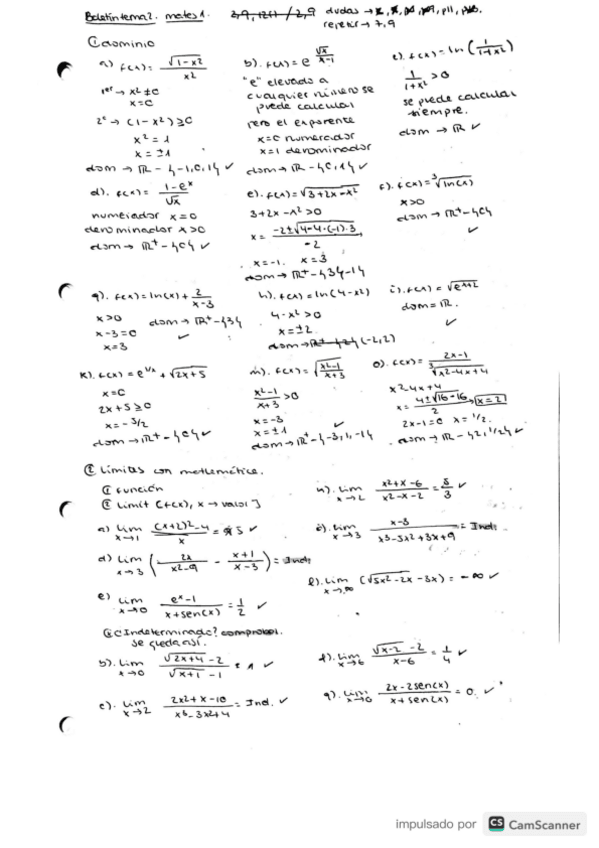 Boletin tema 2. mates 1.
dudas →
repetir → 7,9
① dominio
a) f(x) = √(1-x²) / x²
1er → x² ≠ 0
x = 0
2º → (1-x²) ≥ 0
x² = 1
x = ±1
dom → ℝ - {-1,0,1} ✓
b). f(x) = e^(√x / x-1)
"e" elevado a
cualquier número se
puede calcular
pero el exponente
x=0 numerador
x=1 denominador
dom → ℝ - {0,1} ✓
c). f(x) = ln (1 / 1+x²)
1 / 1+x² > 0
se puede calcular
siempre.
dom → ℝ ✓
d). f(x) = 1-eˣ / √x
numerador x=0
denominador x>0
dom → ℝ⁺ - {0} ✓
e). f(x) = √(3+2x-x²)
3+2x-x² > 0
x = -2±√(4-4·(-1)·3) / -2
x=-1. x=3
dom → ℝ⁺ - {3}-1}
f). f(x) = ³√ln(x)
x>0
dom → ℝ⁺ - {0}
✓
g). f(x) = ln(x) + 2 / x-3
x>0
x-3=0
x=3
dom → ℝ⁺ - {3}
✓
h). f(x) = ln(4-x²)
4-x² > 0
x = ±2
dom → (-2,2)
i). f(x) = √(eˣ+2)
dom = ℝ.
✓
k). f(x) = e^(1/x) + √(2x+5)
x=0
2x+5 ≥ 0
x = -5/2
dom → ℝ⁺ - {0} ✓
m). f(x) = √(x²-1 / x+3)
x²-1 / x+3 > 0
x=-3
x=±1
✓
dom → ℝ⁺ - {-3,1,-1}
o). f(x) = 2x-1 / ³√(x²-4x+4)
x²-4x+4
x = 4±√(16-16) / 2 → x=2
2x-1=0 x=1/2.
dom → ℝ - {2,1/2} ✓
② Límites con mathematica.
① función
② Limit [f(x), x → valor]
a) lim x→1 (x+2)²-4 / x = 5 ✓
d) lim x→3 (2x / x²-9 - x+1 / x-3) = Ind.
e) lim x→0 eˣ-1 / x+sen(x) = 1/2 ✓
Indeterminado? comprobar.
se queda así.
b). lim x→0 √(2x+4) - 2 / √(x+1) - 1 = 1 ✓
c). lim x→2 2x²+x-10 / x³-3x²+4 = Ind. ✓
h). lim x→2 x²+x-6 / x²-x-2 = 5/3 ✓
i). lim x→3 x-3 / x³-5x²+3x+9 = Ind.
l). lim x→∞ (√(5x²-2x) - 3x) = -∞ ✓
f). lim x→6 √(x-2) - 2 / x-6 = 1/4 ✓
g). lim x→0 2x-2sen(x) / x+sen(x) = 0. ✓
impulsado por CS CamScanner